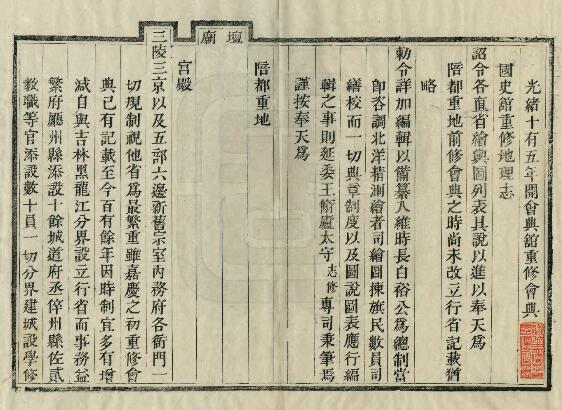 光緒十有五年開會典館重修會典
國史館重修地理志
詔令各直省繪輿圖列表具說以進以奉天為
陪都重地前修會典之時尚未改立行省記載猶
略
勅令詳加編輯以備纂入維時長白裕公為總制當
卽咨調北洋精測繪者司繪圖揀旗民數員司
繕校而一切典章制度以及圖說圖表應行編
輯之事則延委王衛廬太守志修專司秉筆焉
謹按奉天為
陪都重地
壇廟
宮殿
三陵三京以及五部六邊新舊宗室內務府各衙門一
切規制視他省為最繁重雖嘉慶之初重修會
典已有記載至今百有餘年因時制宜多有增
減自與吉林黑龍江分界設立行省而事務益
繁府廳州縣添設十餘城道府丞倅州縣佐貳
教職等官添設數十員一切分界建城設學修